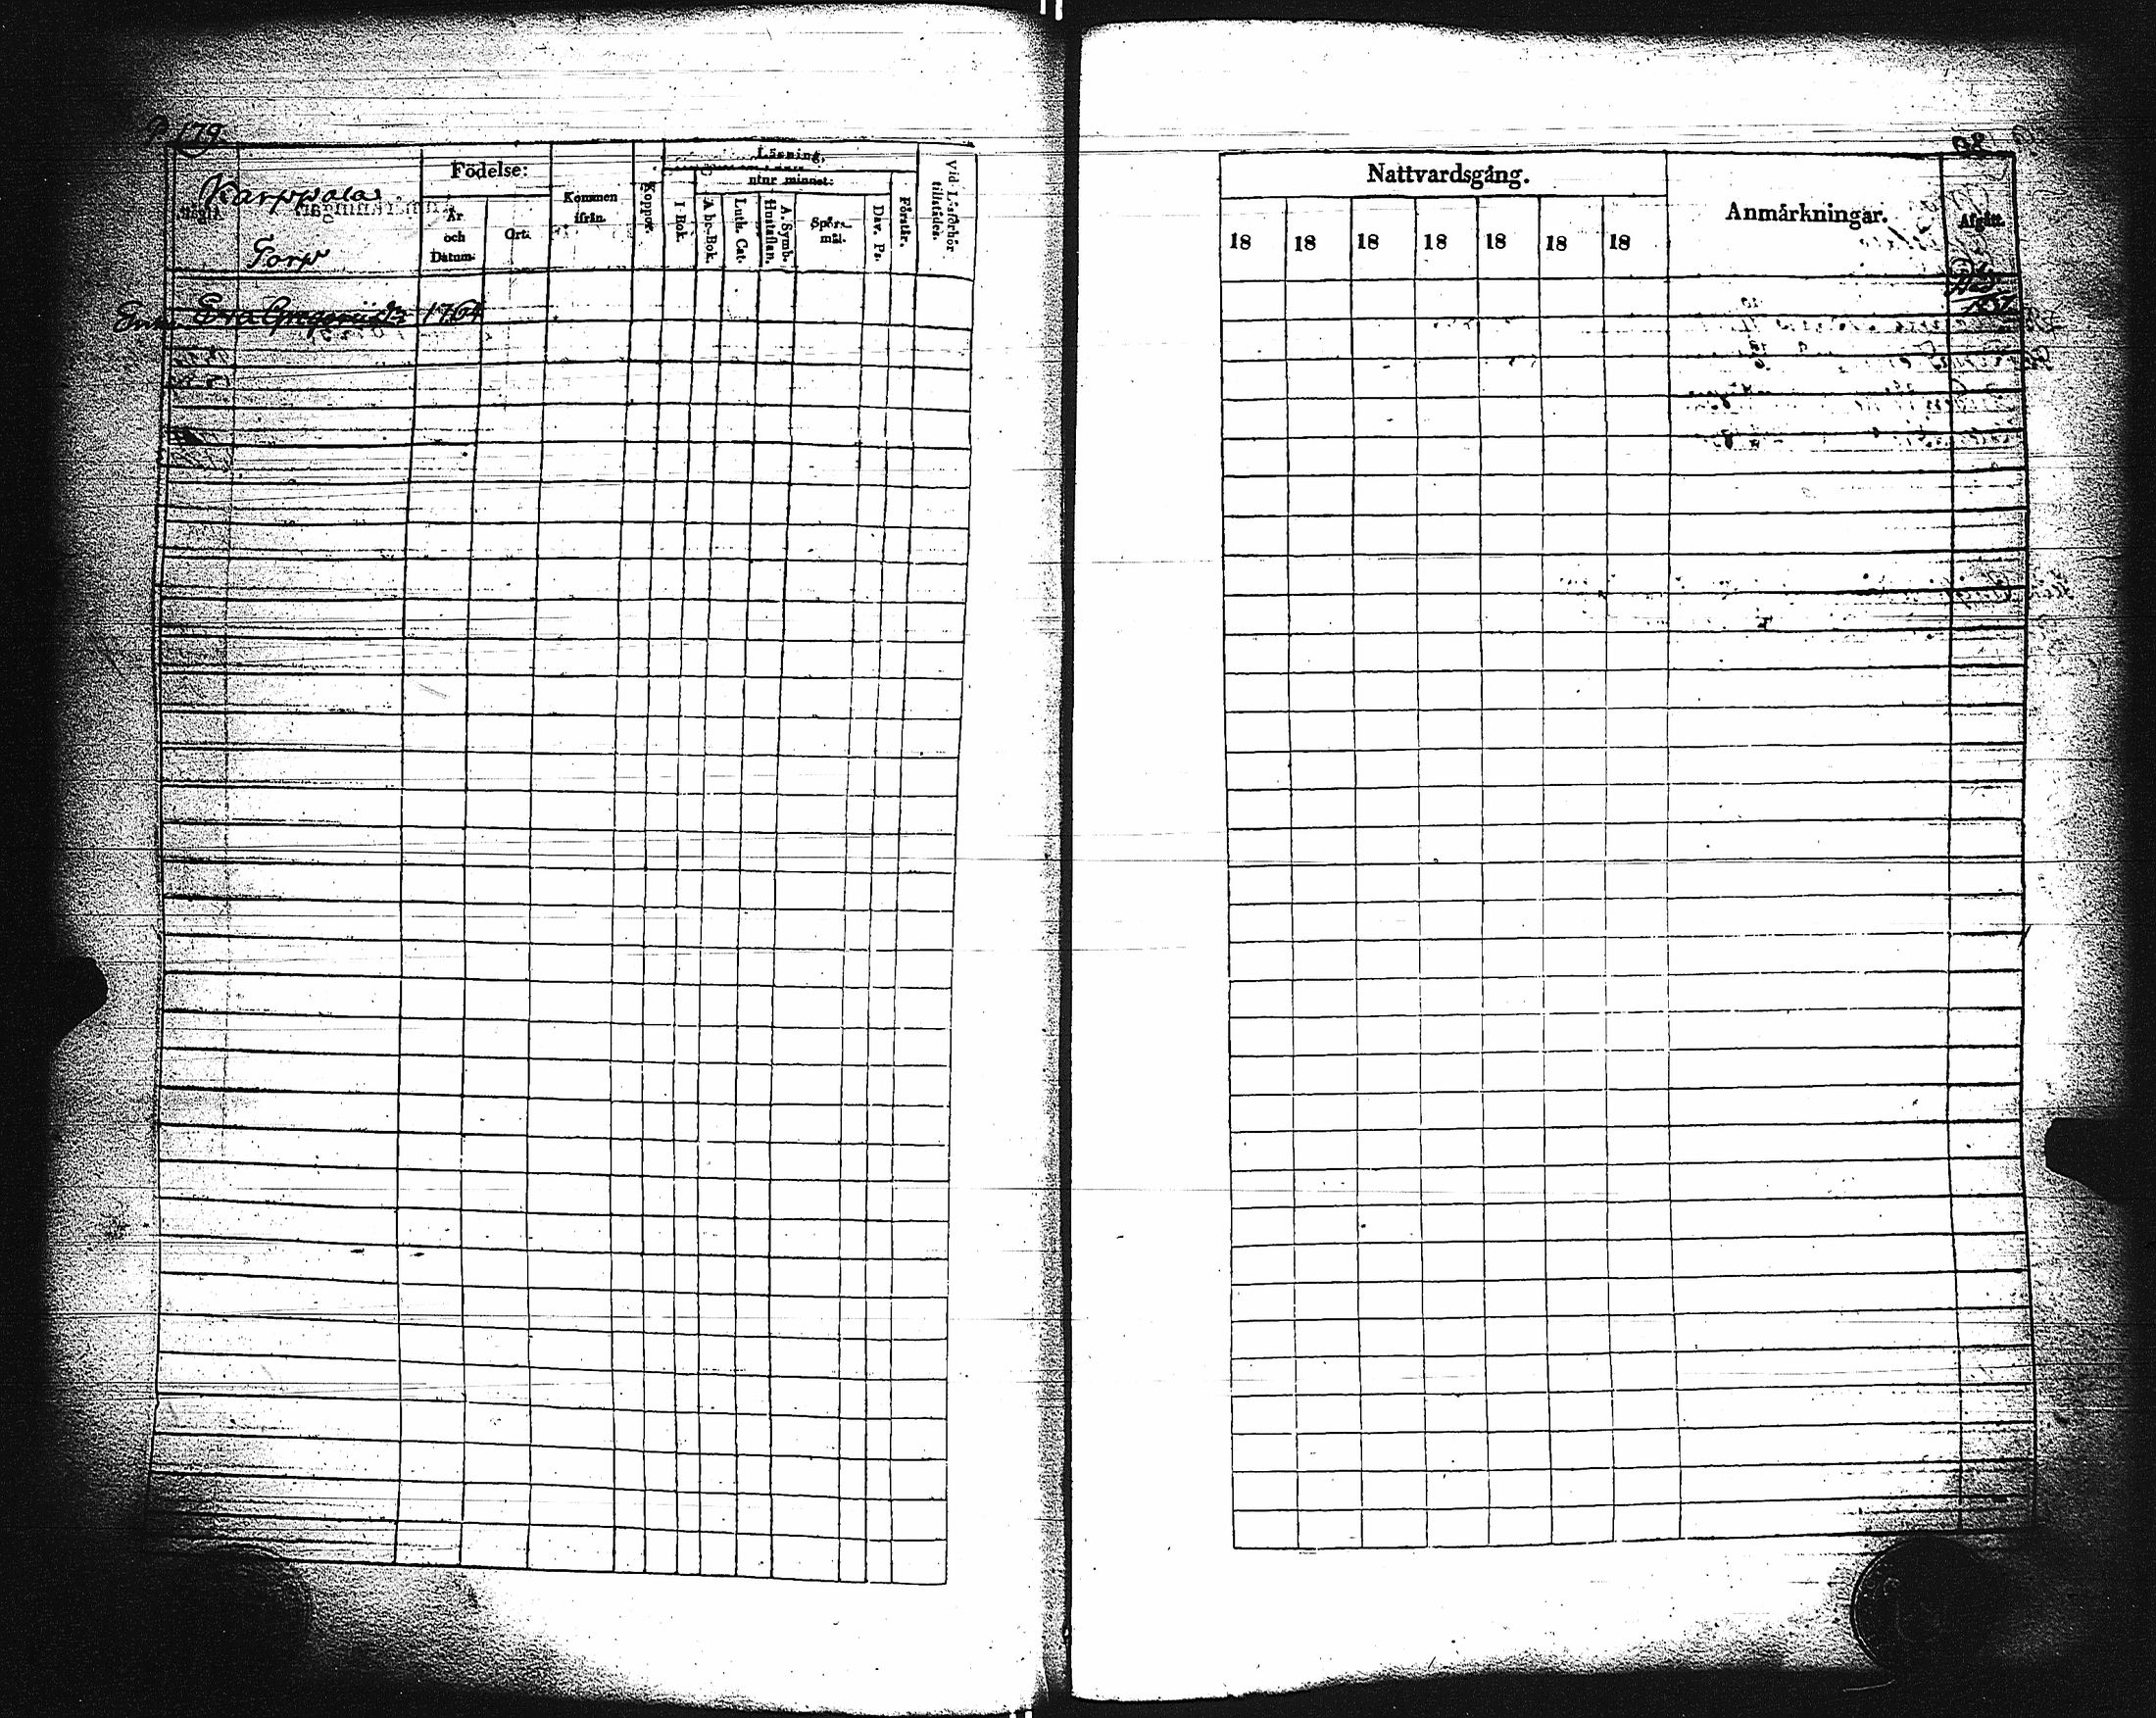 179
Karppala
Torp
Födelse:
År och Datum.
Ort.
Kommen ifrån.
Koppor.
Läsning,
utur minnet:
I Bok.
A bc-Bok.
Luth. Cat.
A. Symb. Hustaflan.
Spörsmål.
Dav. Ps.
Förstår.
Vid Läsförhör tillstädes.
Enk. Eva Gregorii dr 1764
Nattvardsgång.
18 18 18 18 18 18 18
Anmärkningar.
Afgått.
Död
1837